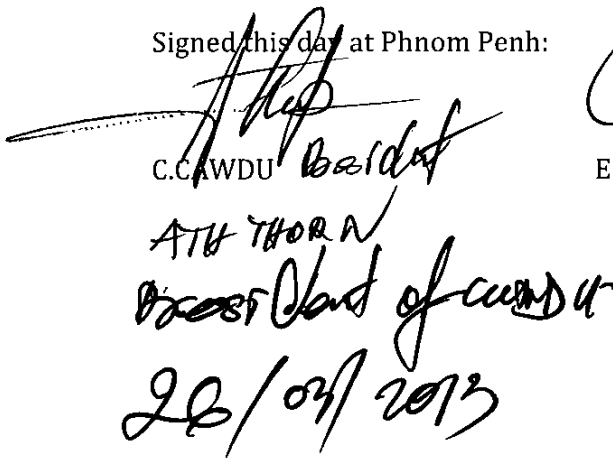 Signed this day at Phnom Penh:
C.CAWDU President E
ATH THORN
President of CCAWDU
26/03/2013